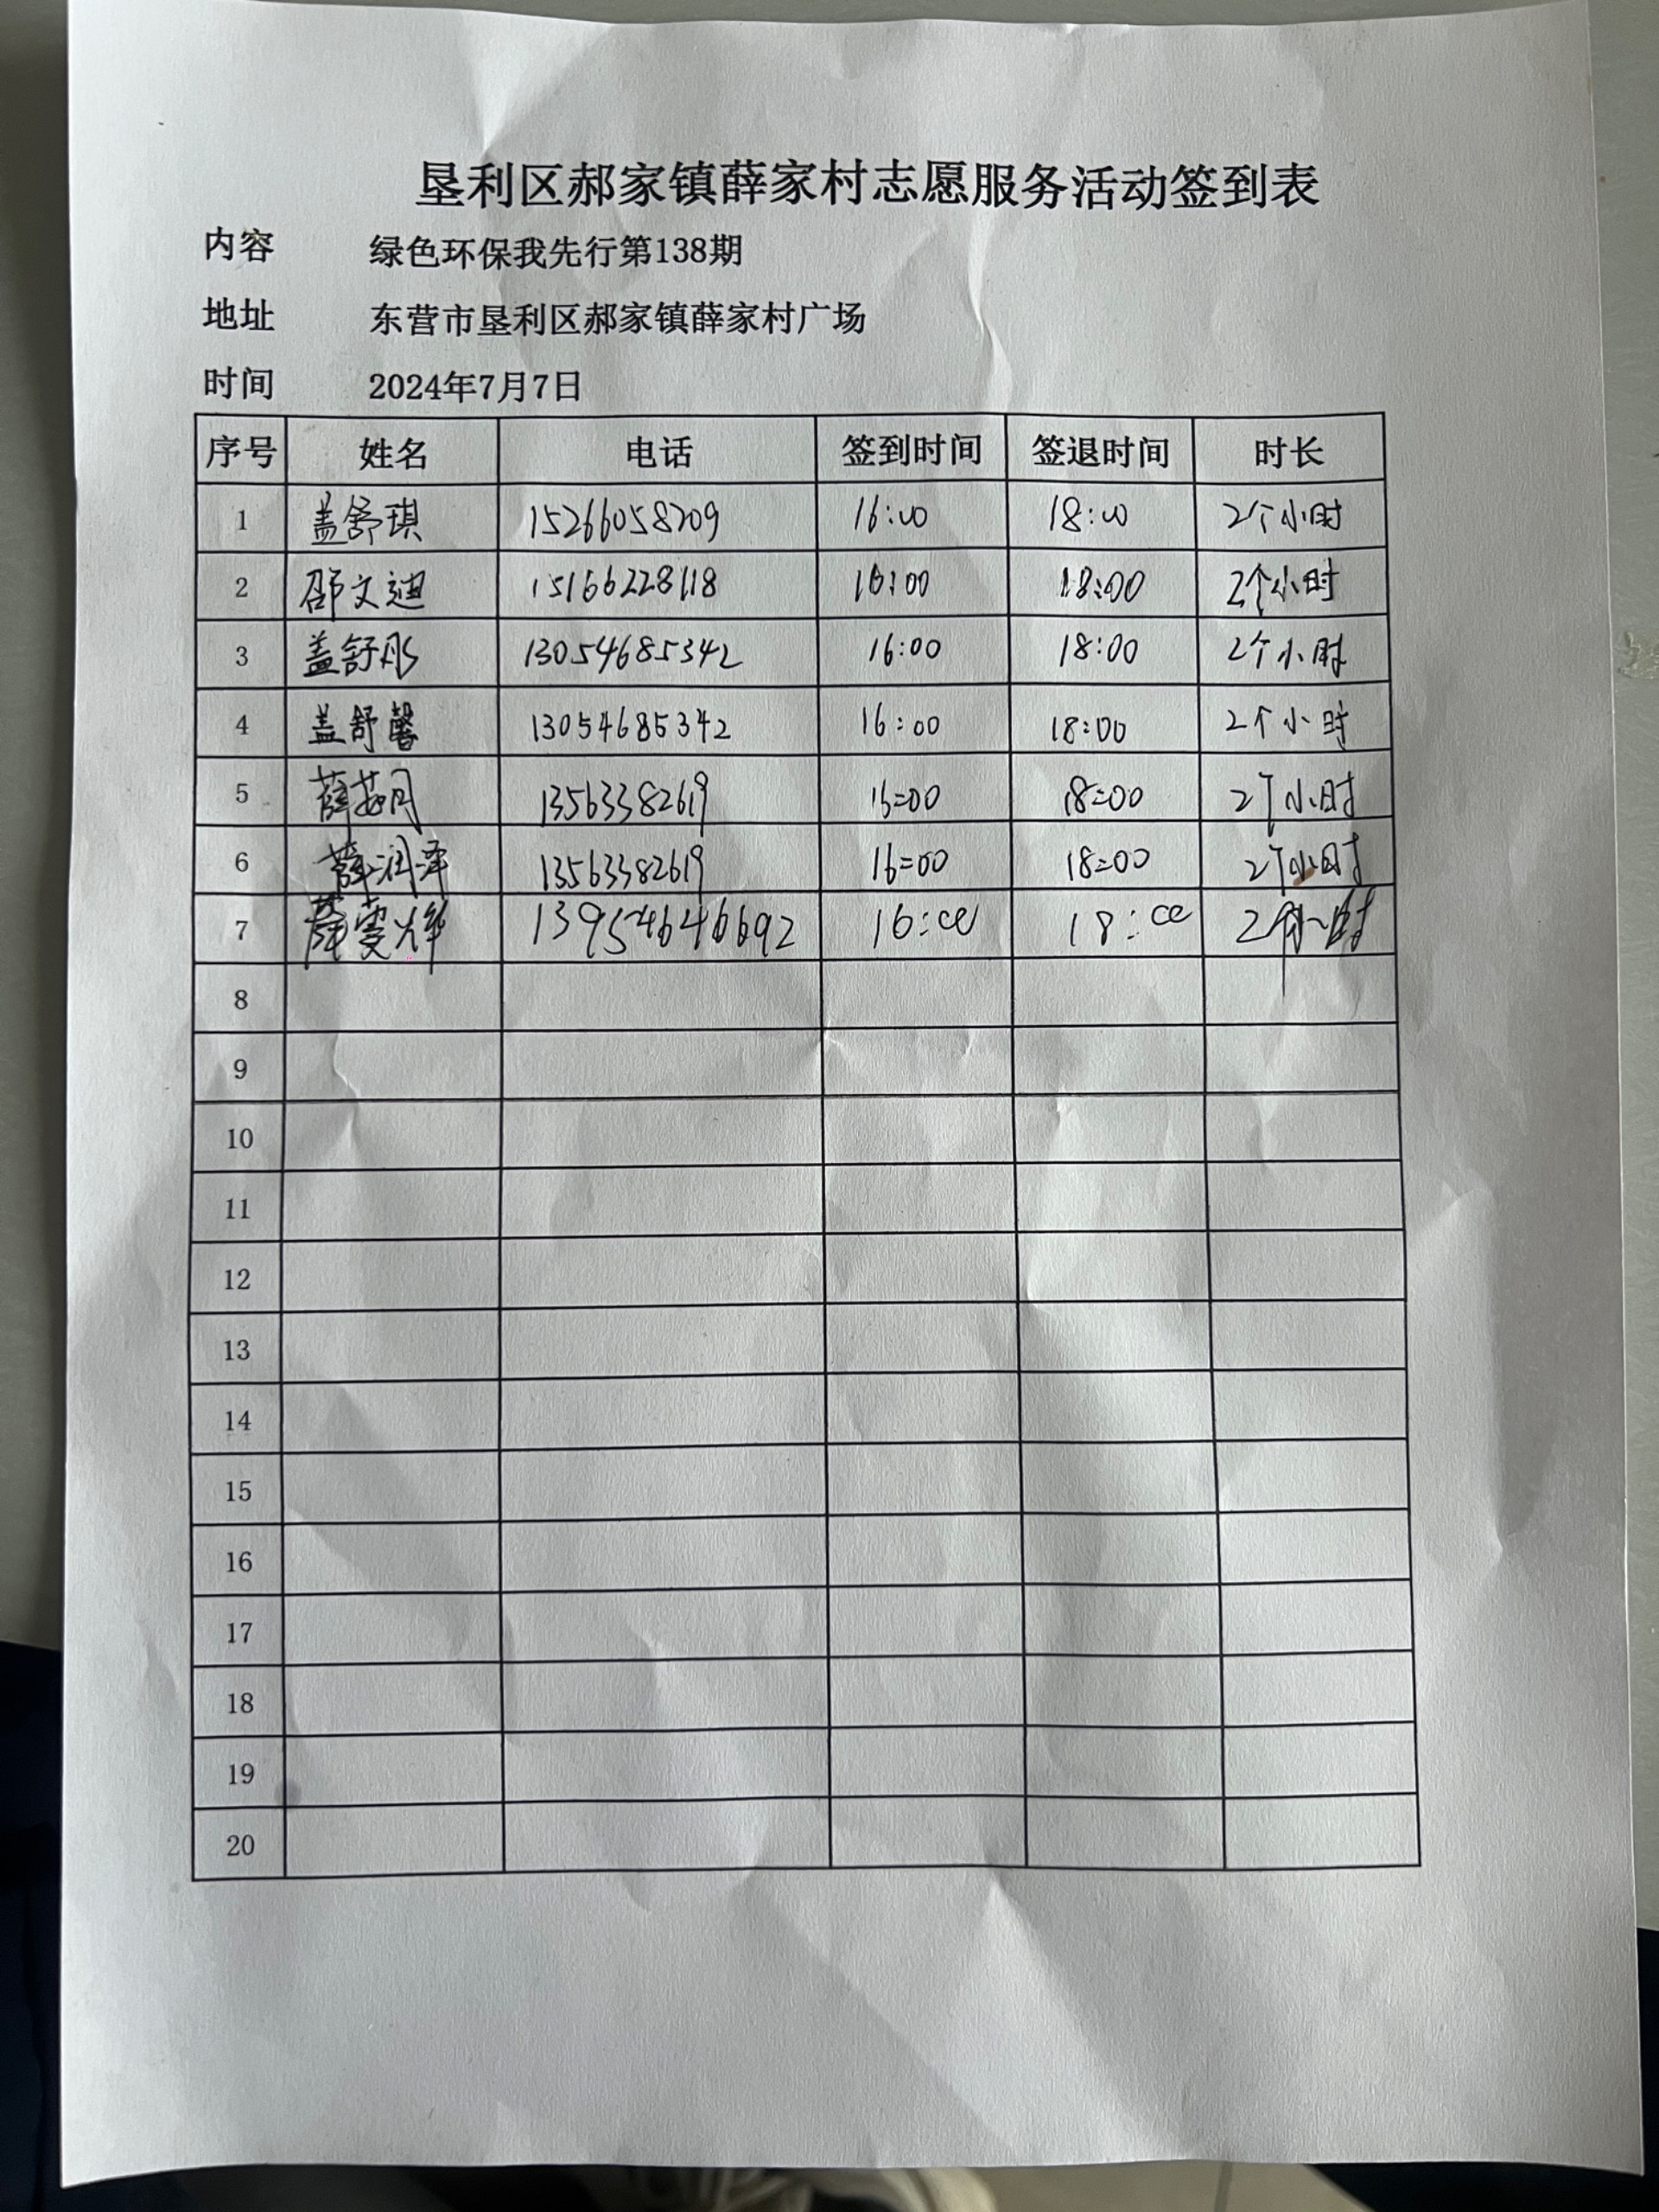 垦利区郝家镇薛家村志愿服务活动签到表
内容 绿色环保我先行第138期
地址 东营市垦利区郝家镇薛家村广场
时间 2024年7月7日
序号 姓名 电话 签到时间 签退时间 时长
1 盖舒琪 15266058209 16:00 18:00 2个小时
2 邵文迪 15166228118 16:00 18:00 2个小时
3 盖舒彤 13054685342 16:00 18:00 2个小时
4 盖舒馨 13054685342 16:00 18:00 2个小时
5 薛 13563382619 16:00 18:00 2个小时
6 薛润泽 13563382619 16:00 18:00 2个小时
7 薛雯烨 13954646692 16:00 18:00 2个小时
8
9
10
11
12
13
14
15
16
17
18
19
20